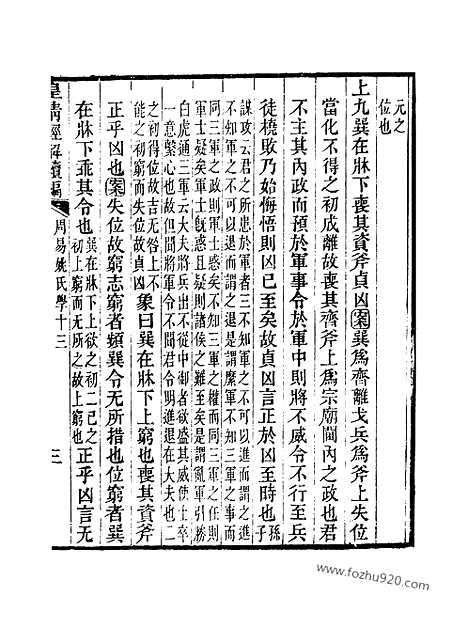 元之
位也
上九巽在牀下喪其資斧貞凶案巽爲齊離戈兵爲斧上失位
當化不得之初成離故喪其齊斧上爲宗廟閫內之政也君
不主其內政而預於軍事令於軍中則將不威令不行至兵
徒橈敗乃始悔悟則凶已至矣故貞凶言正於凶至時也孫子
謀攻云君之所患於軍者三不知軍之不可以進而謂之進
不知軍之不可以退而謂之退是謂縻軍不知三軍之事而
同三軍之政則軍士惑矣不知三軍之權而同三軍之任則
軍士疑矣軍士旣惑且疑則諸侯之難至矣是謂亂軍引勝
白虎通云大夫將兵出不從中御者欲盛其威使士卒
一意繫心也故但聞將軍令不聞君令明進退在大夫也二
能之初得位故吉无咎上不
之初窮而失位故貞凶象曰巽在牀下上窮也喪其資斧
正乎凶也案失位故窮志窮者頻巽令无所措也位窮者巽
在牀下乖其令也巽在牀下上欲之初二已之
初上窮而无所之故上窮也正乎凶言无
皇淸經解續編
周易姚氏學十三
三
www.fozhu920.com